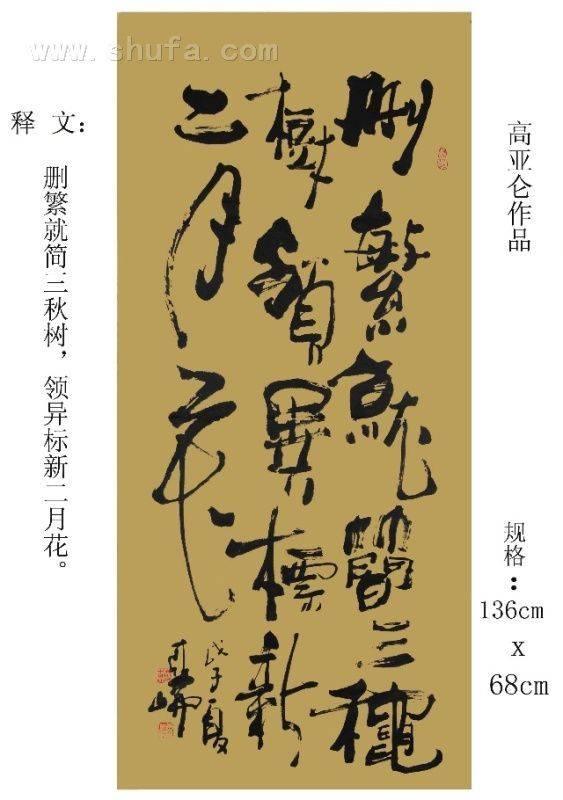 www.shufa.com
高亚仑作品
规格：
136cm
x
68cm
删繁就簡三穐
樹領異標新
二月花
戊子夏
亞崙
释文：
删繁就简三秋树，领异标新二月花。